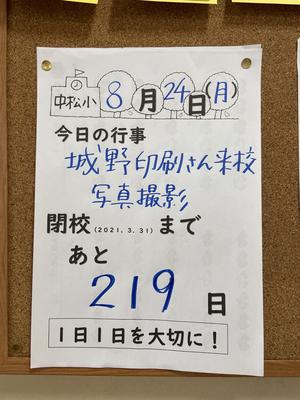 中松小 8月24日(月)
今日の行事
城野印刷さん来校
写真撮影
閉校(2021.3.31)まで
あと
219日
1日1日を大切に!